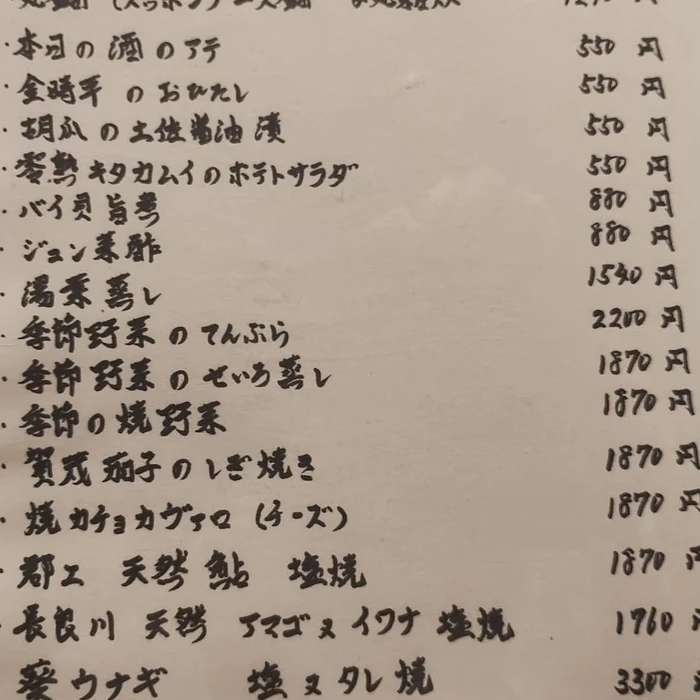 ・本日の酒のアテ 550円
・金時草のおひたし 550円
・胡瓜の土佐醤油漬 550円
・キタカムイのポテトサラダ 550円
・バイ貝旨煮 880円
・ジュン菜酢 880円
・湯葉蒸し 1540円
・季節野菜のてんぷら 2200円
・季節野菜のせいろ蒸し 1870円
・季節の焼野菜 1870円
・賀茂茄子のしぎ焼き 1870円
・焼カチョカヴァロ（チーズ） 1870円
・郡上 天然鮎 塩焼 1870円
・長良川 天然 アマゴ又イワナ 塩焼 1760円
ウナギ 塩又タレ焼 3300円